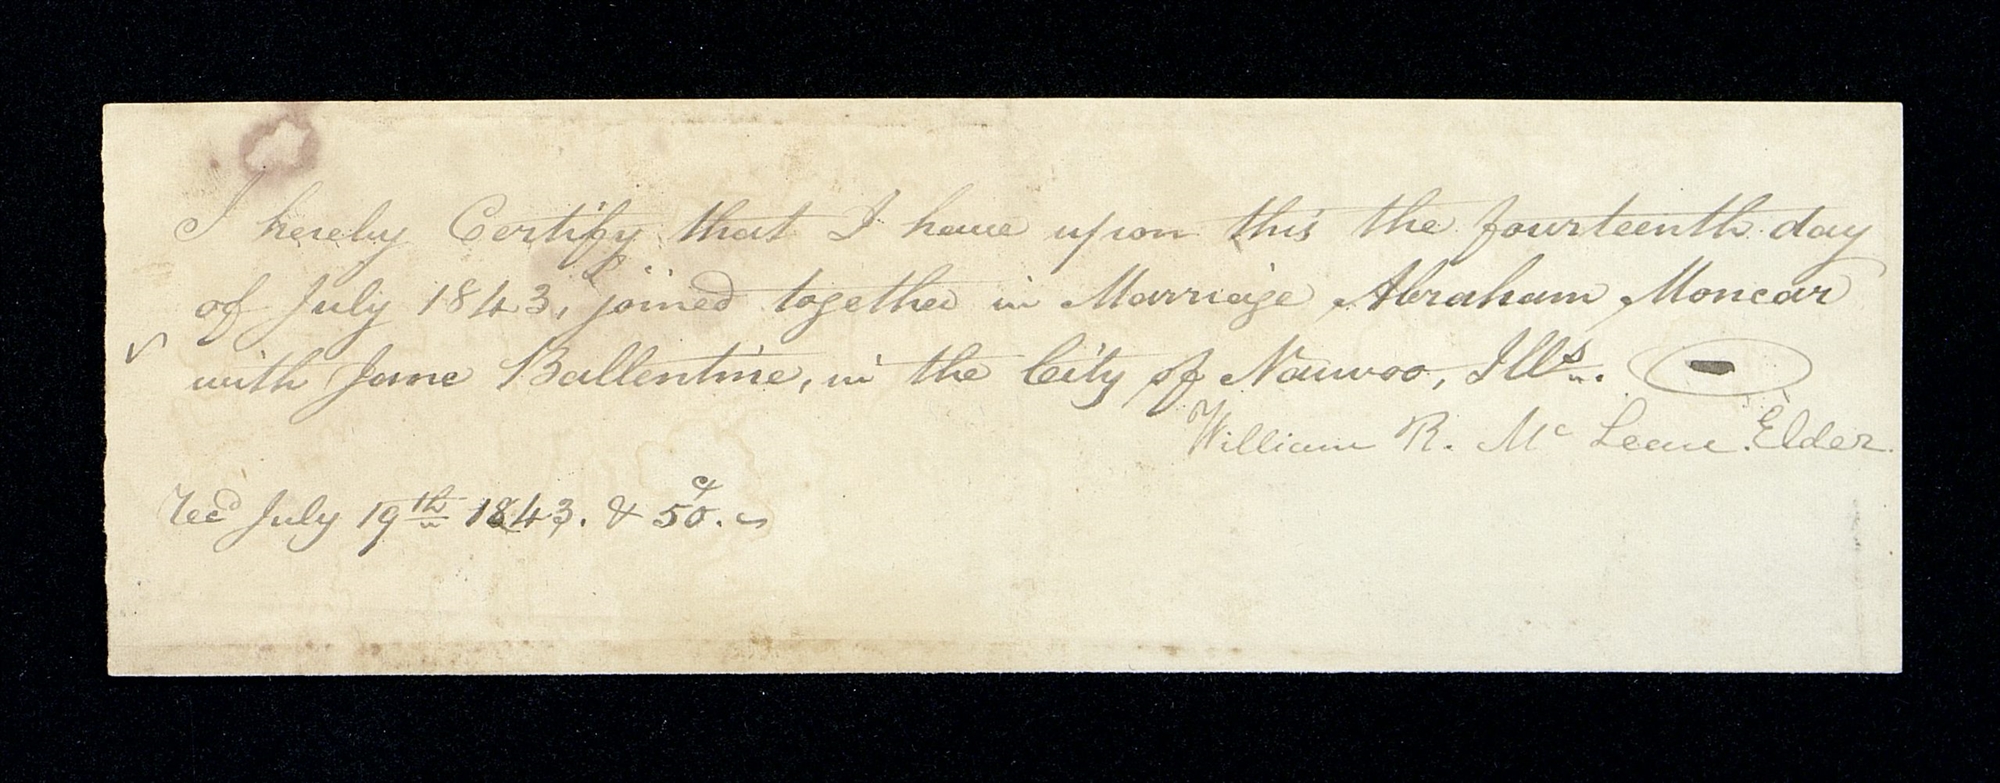 I hereby Certify that I have upon this the fourteenth day
of July 1843, joined together in Marriage Abraham Moncar
with Jane Ballentine, in the City of Nauvoo, Ills.
William R. Mc Lean Elder.
Recd July 19th 1843. & 50.